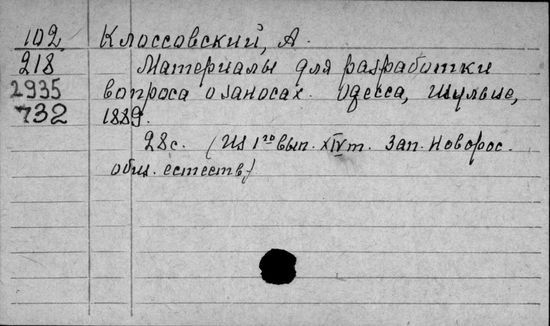 102 Клоссовский, А.
218 Материалы для разработки
2935 вопроса о заносах. Одесса, Шульце,
732 1889.
28с. (Из 1го вып. XIVт. Зап. Новорос.
общ. естеств.)